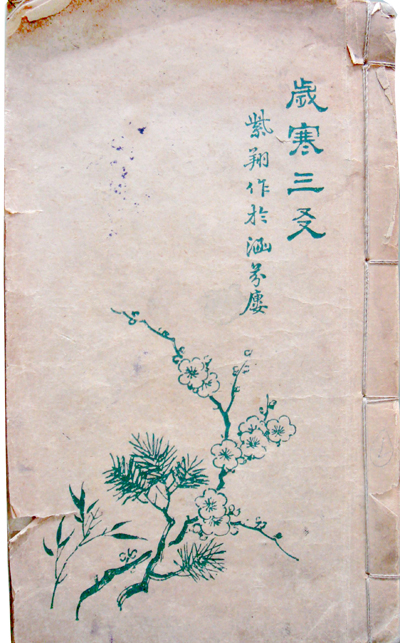 歲寒三友
紫翔作於涵芬廔